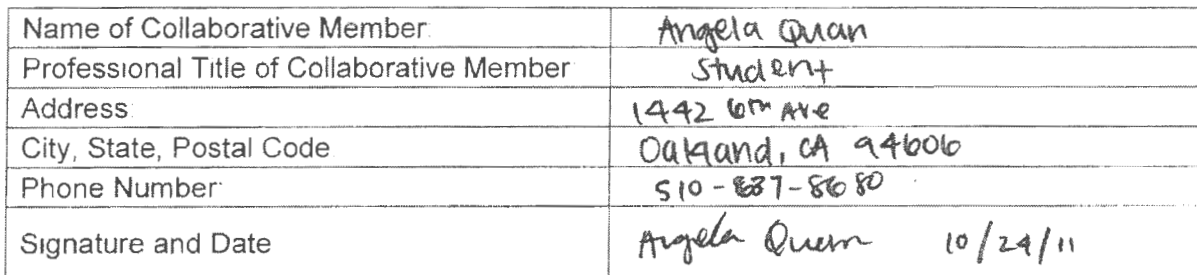 Name of Collaborative Member: Angela Quan
Professional Title of Collaborative Member Student
Address: 1442 6th Ave
City, State, Postal Code Oakland, CA 94606
Phone Number: 510-
Signature and Date Angela Quan 10/24/11